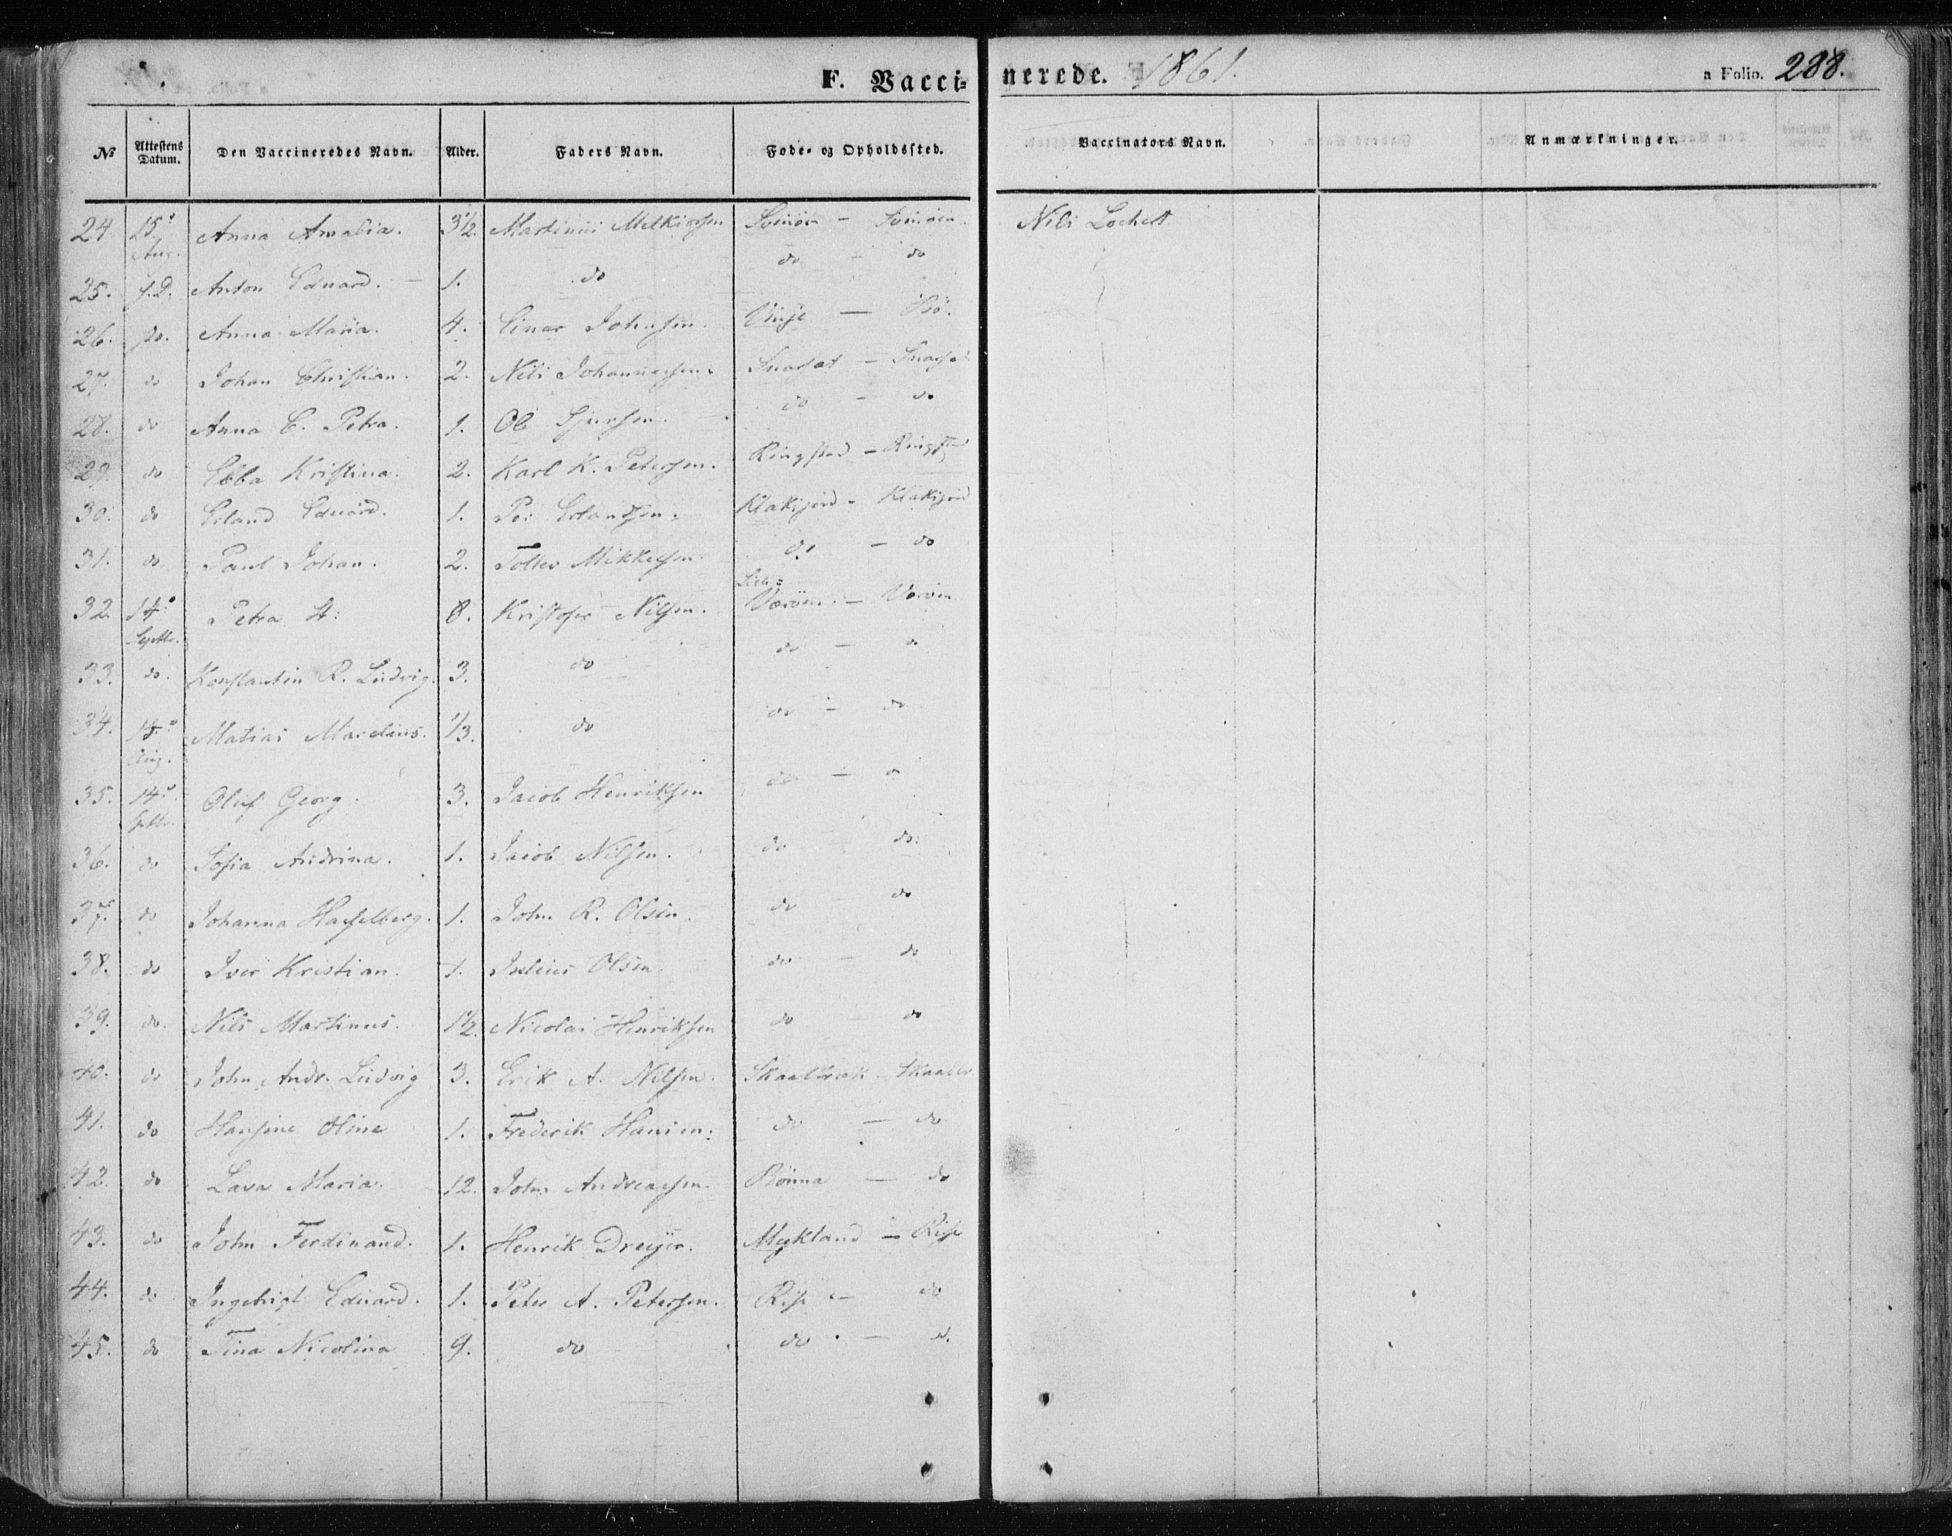 F. Vaccinerede. 1861.
a Folio. 288.
№ Attestens Datum. Den Vaccineredes Navn. Alder. Faders Navn. Føde- og Opholdssted. Vaccinators Navn. Anmærkninger.
24 15. Aug. Anna Amalia. 3½. Martinus Melkiorsen Svinöen - Svinöen. Nils Lockert
25. s.D. Anton Eduard. - 1. do do - do
26. do. Anna Maria. 4. Einar Johnsen. Vinje - Bö.
27. do Johan Christian. 2. Nils Johannessen. Snarset - Snarset
28. do Anna C. Petra. 1. Ole Sjursen. do - do
29 do Ebba Kristina. 2. Karl K. Petersen. Ringstad - Ringstad
30. do Erland Eduard. 1. Per Erlandsen. Klakjord - Klakjord
31. do Paul Johan. 2. Tollev Mikkelsen. do - do
32. 14. Septbr. Petra H: 8. Kristofer Nilsen. Væröen. - Væröen
33. do. Konstantin R. Ludvig. 3. do do - do
34. 15. Aug. Matias Marelius. 1/3. do do - do
35. 14. Septbr. Oluf Georg. 3. Jacob Henriksen do - do
36. do Sofia Andrina. 1. Jacob Nilsen. do do.
37. do Johanna Hasselberg. 1. John R. Olsen. do - do
38. do Iver Kristian. 1. Julius Olsen. do - do
39. do. Nils Martinus. 1½. Nicolai Henriksen do - do
40. do John Andr. Ludvig 3. Erik A. Nilsen. Skaalbræk - Skaalbr
41. do Hansine Stine 1. Frederik Hansen. do - do
42. do Lava Maria. 12. John Andreassen. Rönna - do
43. do John Ferdinand. 1. Henrik Dreyer. Mykland - Rise
44. do Ingebrigt Eduard. 1. Peter A. Petersen. Rise - do
45. do Tina Nicolina 9. do do - d.